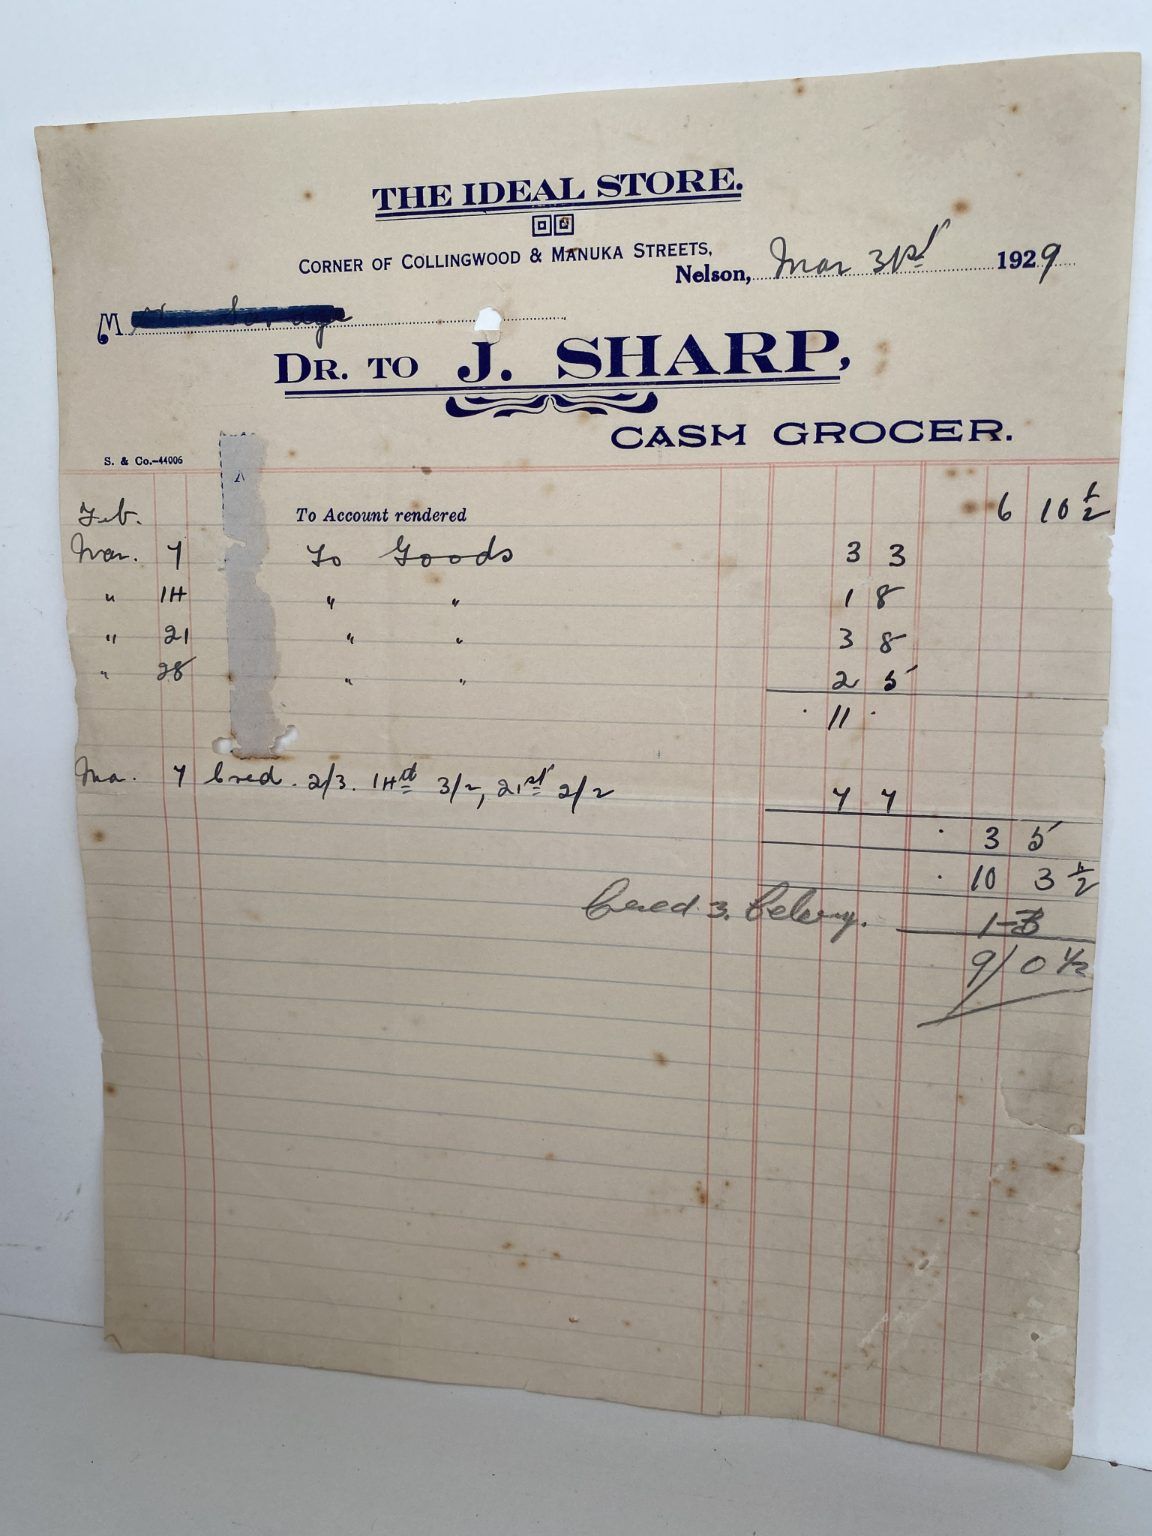 THE IDEAL STORE.
CORNER OF COLLINGWOOD & MANUKA STREETS,
Nelson, Mar 31st 1929
M
DR. TO J. SHARP,
CASH GROCER.
S. & Co.—44006
Feb. To Account rendered 6 10 1/2
Mar. 7 To Goods 3 3
" 14 " " 1 8
" 21 " " 3 8
" 28 " " 2 5
· 11 ·
Mar. 7 Cred. 2/3. 14th 3/2, 21st 2/2 7 7
· 3 5
· 10 3 1/2
Cred 3. Celery. 1-3
9/0 1/2